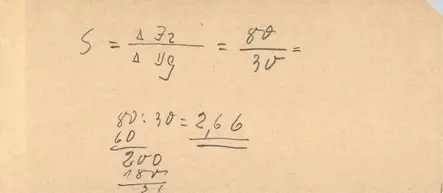 S = Δ Ia / Δ Ug = 80 / 30 =
80 : 30 = 2,66
60
200
180